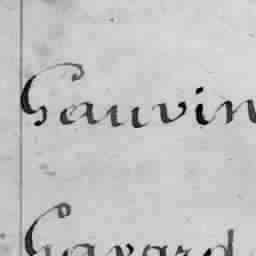 Gauvin
Gavard